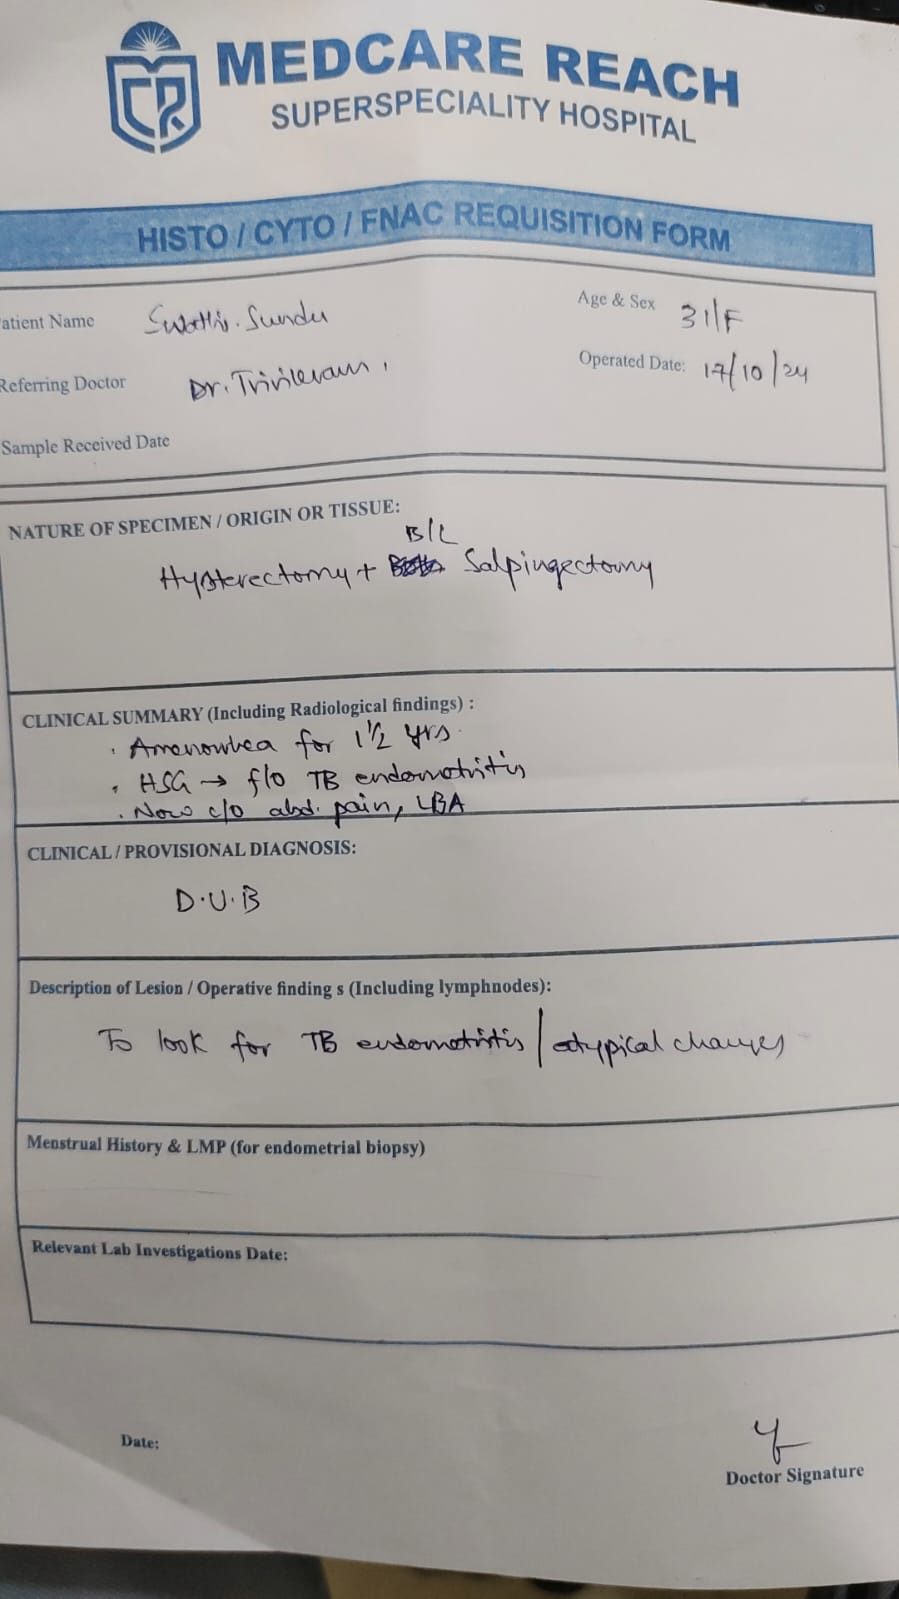 MEDCARE REACH
SUPERSPECIALITY HOSPITAL
HISTO / CYTO / FNAC REQUISITION FORM
atient Name Swathi. Sundu
Age & Sex 31/F
Referring Doctor Dr.
Operated Date: 17/10/24
Sample Received Date
NATURE OF SPECIMEN / ORIGIN OR TISSUE:
B/L
Hysterectomy + Salpingectomy
CLINICAL SUMMARY (Including Radiological findings) :
. Amenorrhea for 1 1/2 yrs.
. HSG → f/o TB endometritis
. Now c/o abd. pain, LBA
CLINICAL / PROVISIONAL DIAGNOSIS:
D.U.B
Description of Lesion / Operative finding s (Including lymphnodes):
To look for TB endometritis / atypical changes
Menstrual History & LMP (for endometrial biopsy)
Relevant Lab Investigations Date:
Date:
Doctor Signature